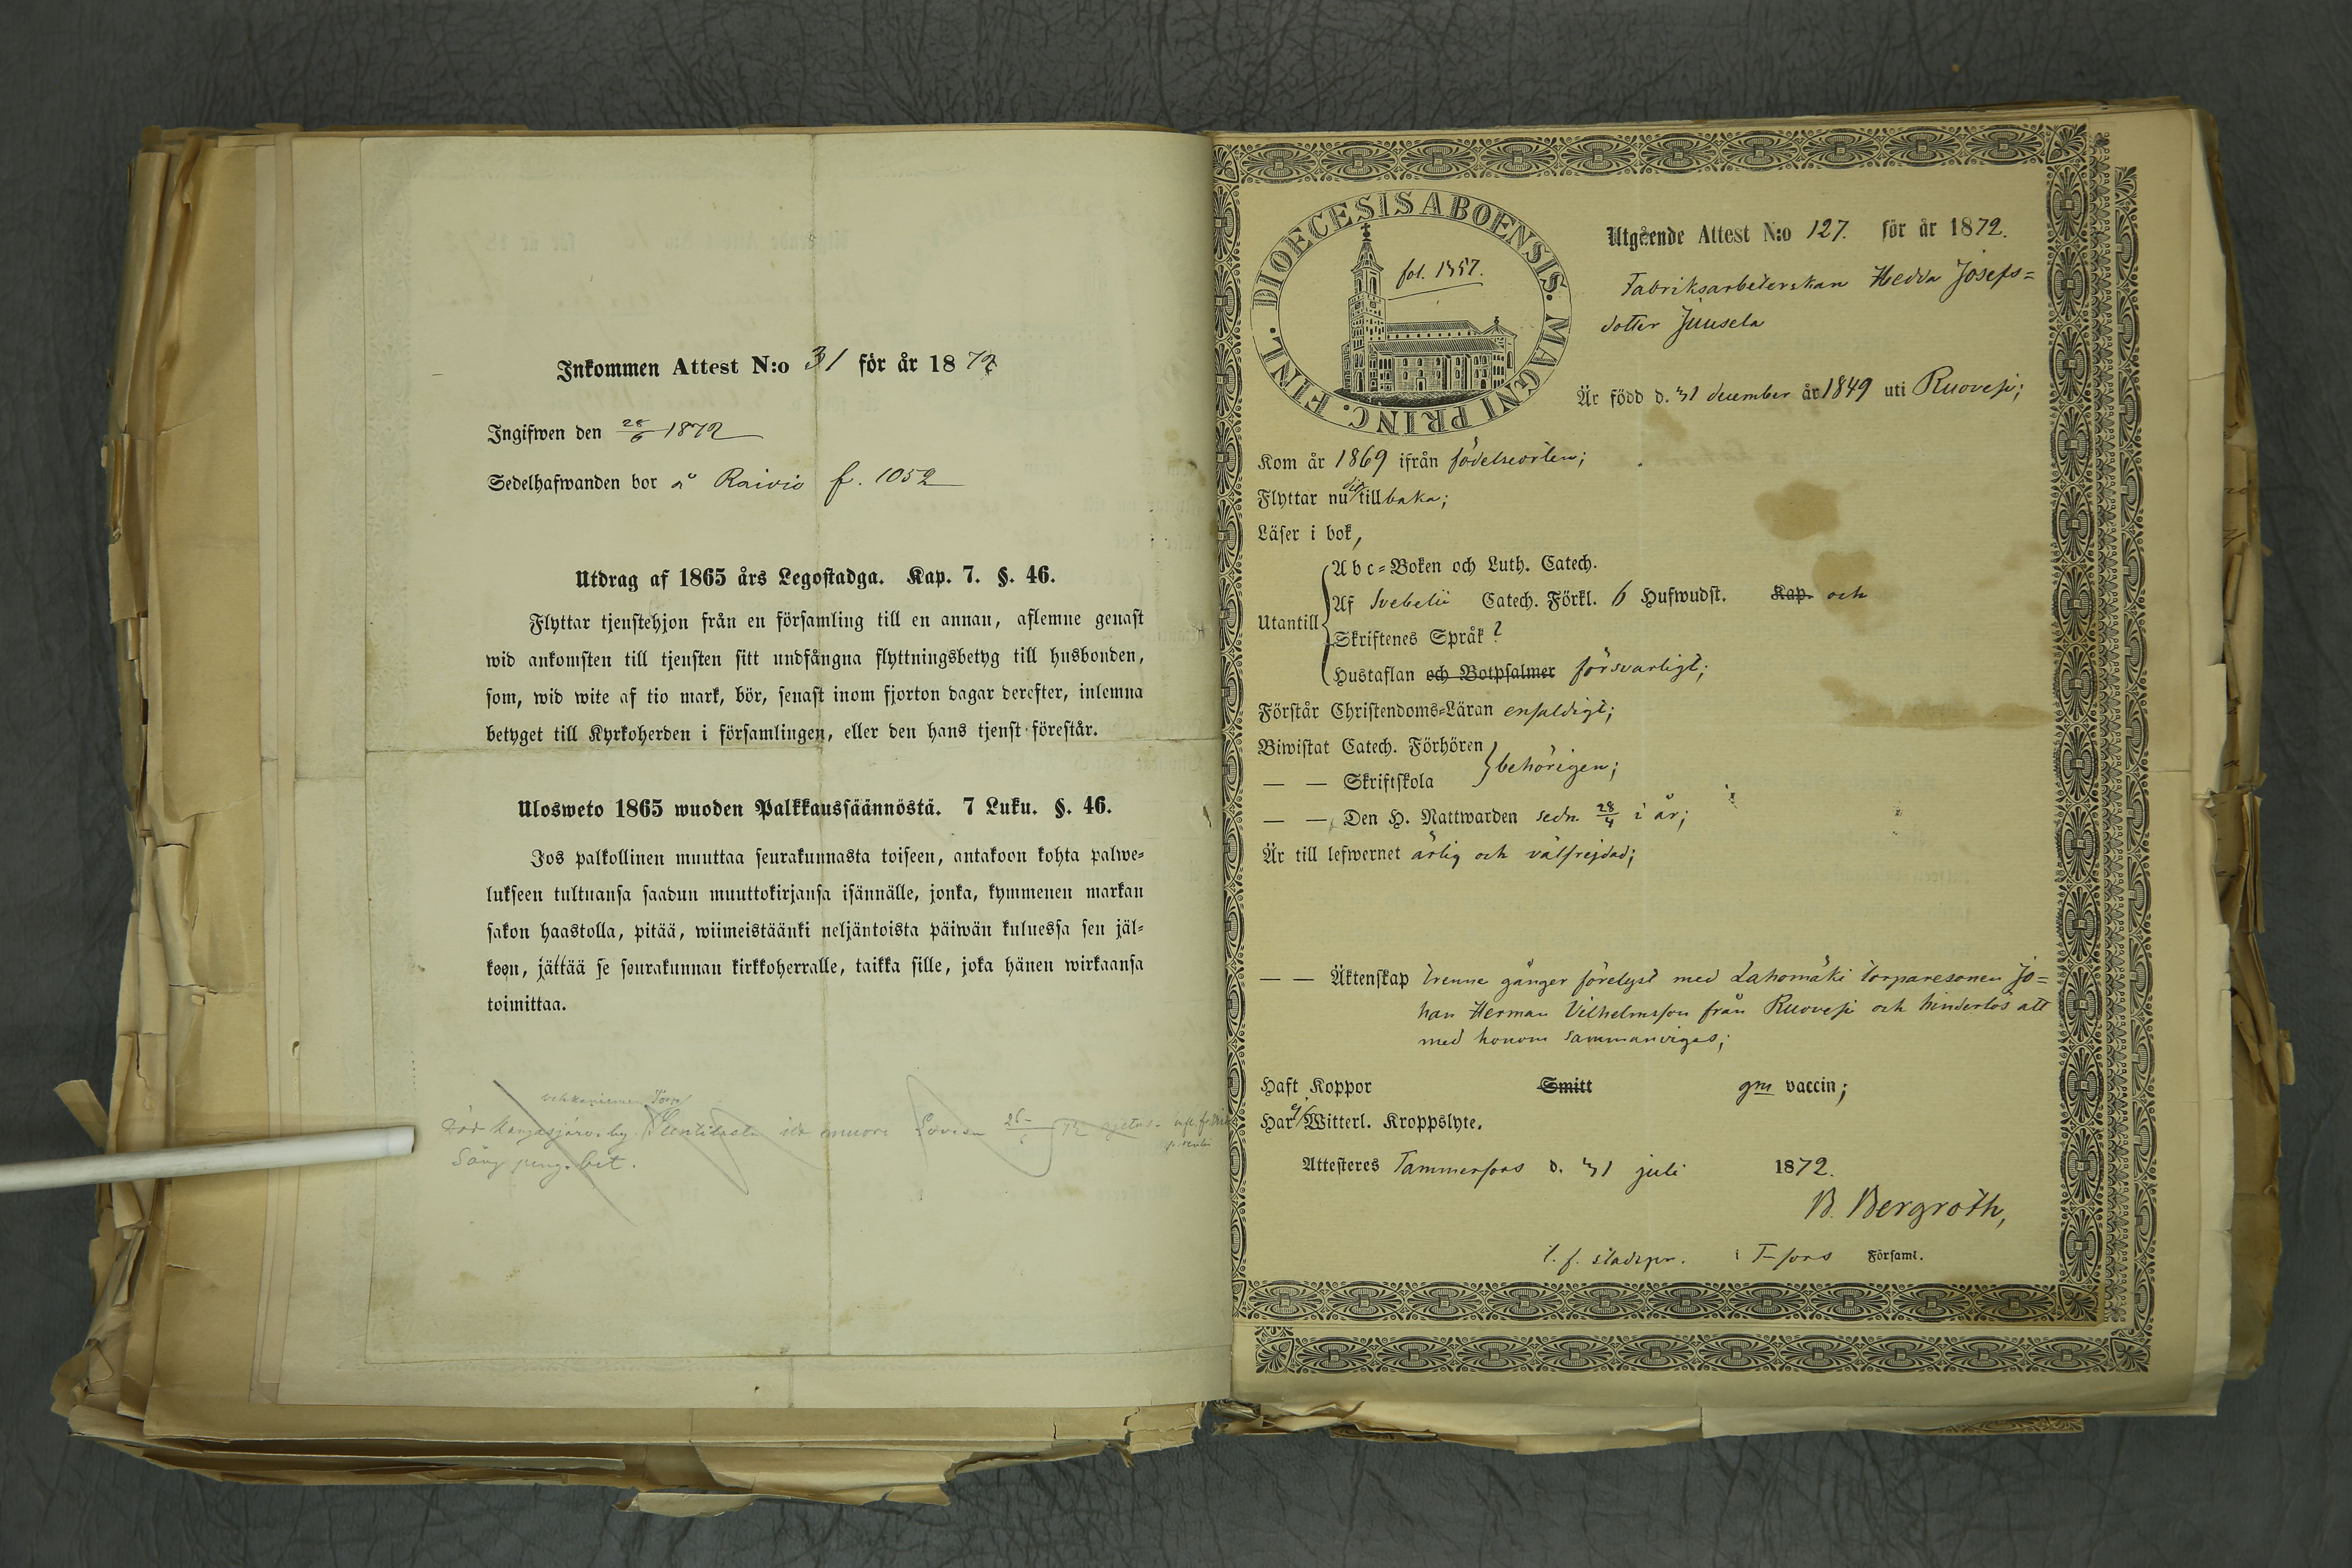 Inkommen Attest N:o 31 för år 1872
Ingifwen den 28/6 1872
Sedelhafwanden bor å Raivio f. 1052
Utdrag af 1865 års Legostadga. Kap. 7. §. 46.
Flyttar tjenstehjon från en församling till en annan, aflemne genast
wid ankomsten till tjensten sitt undfångna flyttningsbetyg till husbonden,
som, wid wite af tio mark, bör, senast inom fjorton dagar derefter, inlemna
betyget till Kyrkoherden i församlingen, eller den hans tjenst förestår.
Ulosweto 1865 wuoden Palkkaussäännöstä. 7 Luku. §. 46.
Jos palkollinen muuttaa seurakunnasta toiseen, antakoon kohta palwe-
lukseen tultuansa saadun muuttokirjansa isännälle, jonka, kymmenen markan
sakon haastolla, pitää, wiimeistäänki neljäntoista päiwän kuluessa sen jäl-
keen, jättää se seurakunnan kirkkoherralle, taikka sille, joka hänen wirkaansa
toimittaa.
by.
Lovisa
bet.
DIOECESIS ABOENSIS. MAGNI PRINC. FINL.
fol. 1357.
Utgående Attest N:o 127. för år 1872.
Fabriksarbeterskan Hedda Josefs=
dotter Juusela
Är född d. 31 december år 1849 uti Ruovesi;
Kom år 1869 ifrån födelseorten;
Flyttar nu dit tillbaka;
Läser i bok,
Utantill
Abc=Boken och Luth. Catech.
Af Svebelii Catech. Förkl. 6 Hufwudst. Kap. och
Skriftenes Språk ?
Hustaflan och Botpsalmer försvarligt;
Förstår Christendoms=Läran enfaldigt;
Biwistat Catech. Förhören
— — Skriftskola
behörigen;
— — Den H. Nattwarden sedn. 28/4 i år;
Är till lefwernet ärlig och välfrejdad;
— — Äktenskap trenne gånger förelyst med Lahomäki torparesonen Jo=
han Herman Vilhelmsson från Ruovesi och hinderlös att
med honom sammanvigas;
Haft Koppor Smitt gm vaccin;
Har ej Witterl. Kroppslyte.
Attesteres Tammerfors d. 31 juli 1872.
B. Bergroth,
t. f. stadspr. i T-fors Församl.